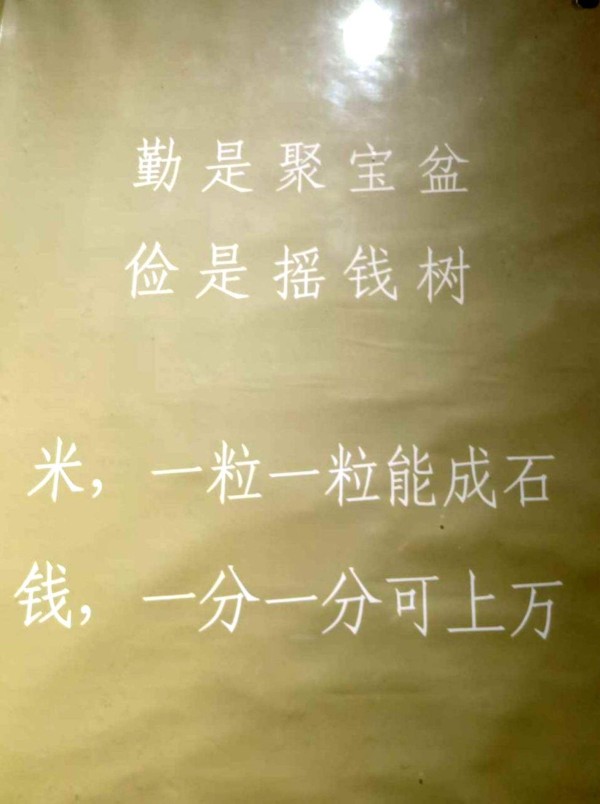 勤是聚宝盆
俭是摇钱树
米，一粒一粒能成石
钱，一分一分可上万